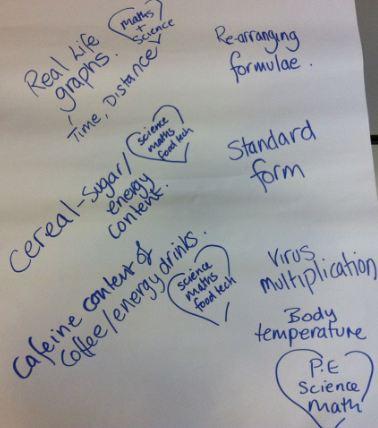 Real Life
graphs.
maths
+
science
Time, Distance
Re-arranging
formulae.
Cereal-Sugar/
energy
content.
science
maths
food tech
Standard
form
Cafeine content of
Coffee/energy drinks.
science
maths
food tech
Virus
multiplication
Body
temperature
P.E
Science
Math